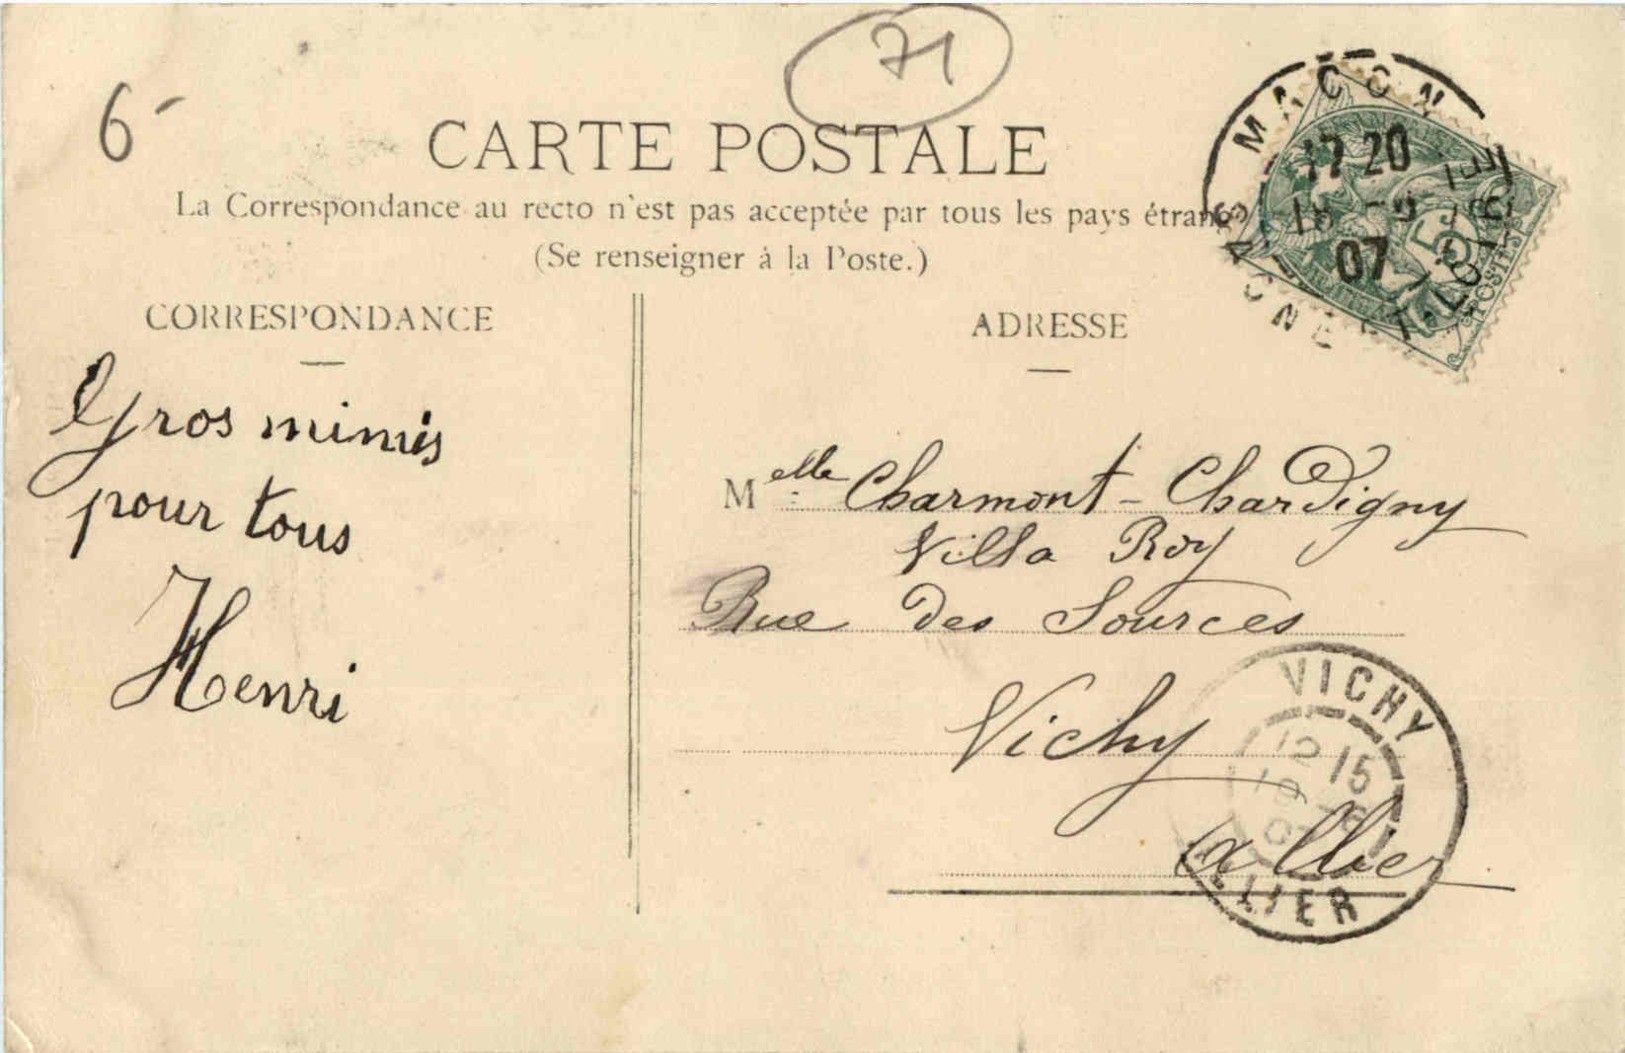 71
6-
CARTE POSTALE
La Correspondance au recto n'est pas acceptée par tous les pays étrang
(Se renseigner à la Poste.)
MACON
17 20
07
SAONE ET LOIRE
5
POSTES
CORRESPONDANCE
Gros mimis
pour tous
Henri
ADRESSE
Melle Charmont - Chardigny
Villa Roy
Rue des Sources
Vichy
Allier
VICHY
12 15
ALLIER